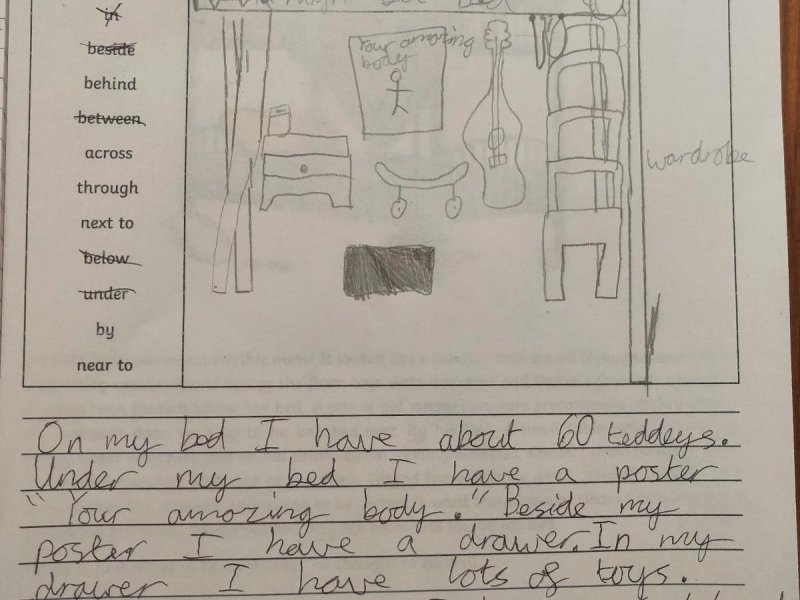 in
beside
behind
between
across
through
next to
below
under
by
near to
Your amazing
body
wardrobe
On my bed I have about 60 teddeys.
Under my bed I have a poster
"Your amazing body." Beside my
poster I have a drawer. In my
drawer I have lots of toys.